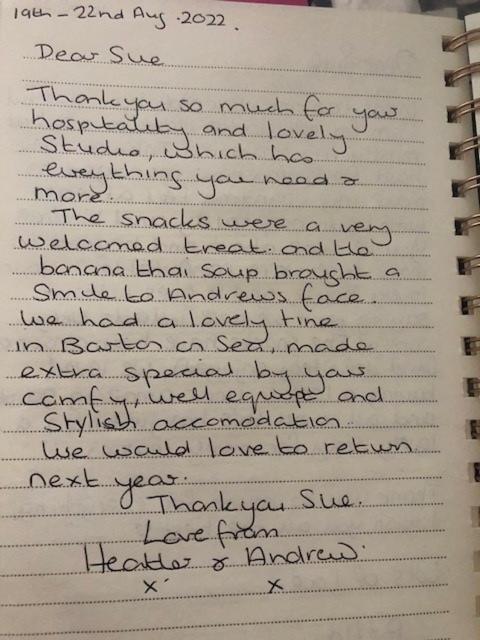 19th - 22nd Aug. 2022.
Dear Sue
Thankyou so much for your
hospitality and lovely
Studio, which has
everything you need &
more.
The snacks were a very
welcomed treat. and the
banana thai soup brought a
Smile to Andrews face.
We had a lovely time
in Barton on Sea, made
extra special by your
comfy, well equipt and
Stylish accomodation.
We would love to return
next year.
Thankyou Sue.
Love from
Heather & Andrew.
x x